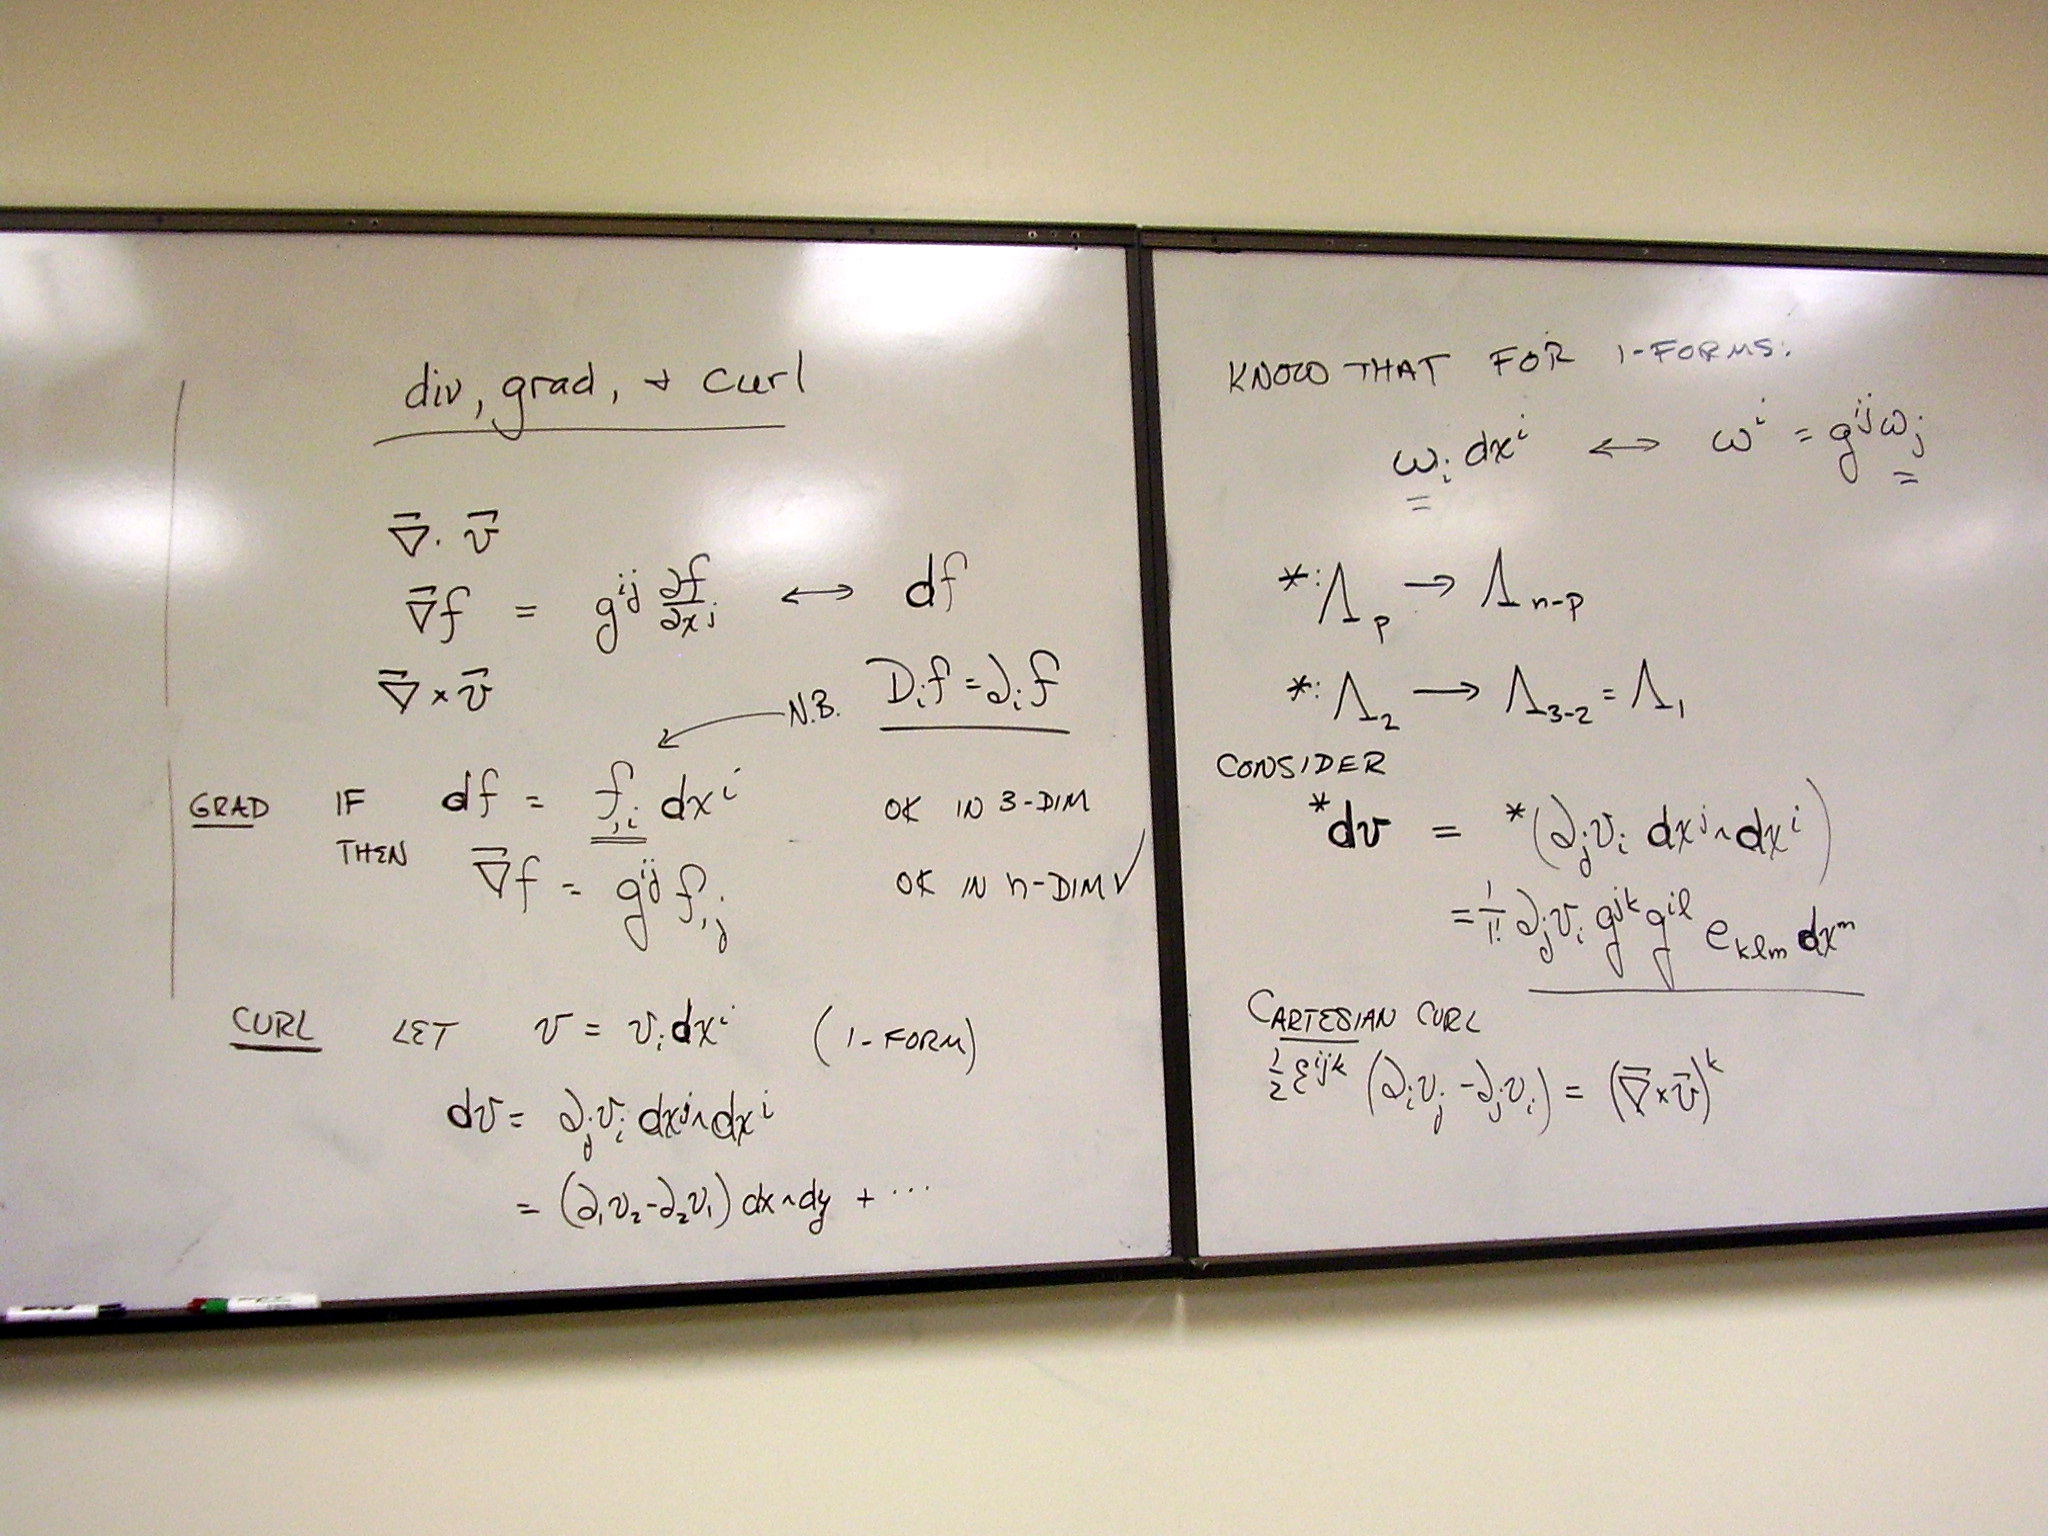 div, grad, + curl
∇⃗ · v⃗
∇⃗f = g^{ij} ∂f/∂x^j ↔ df
∇⃗ × v⃗
N.B. D_i f = ∂_i f
GRAD IF df = f_{,i} dx^i OK IN 3-DIM
THEN ∇⃗f = g^{ij} f_{,j} OK IN n-DIM ✓
CURL LET v = v_i dx^i (1-FORM)
dv = ∂_j v_i dx^j ∧ dx^i
= (∂_1 v_2 - ∂_2 v_1) dx ∧ dy + ...
KNOW THAT FOR 1-FORMS:
ω_i dx^i ↔ ω^i = g^{ij} ω_j
*: Λ_p → Λ_{n-p}
*: Λ_2 → Λ_{3-2} = Λ_1
CONSIDER
*dv = *(∂_j v_i dx^j ∧ dx^i)
= 1/1! ∂_j v_i g^{jk} g^{il} e_{klm} dx^m
CARTESIAN CURL
1/2 ε^{ijk} (∂_i v_j - ∂_j v_i) = (∇⃗ × v⃗)^k